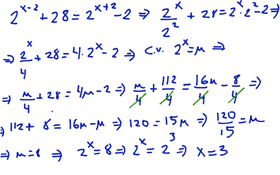 2^(x-2) + 28 = 2^(x+2) - 2 ⇒ 2^x/2^2 + 28 = 2^x · 2^2 - 2 ⇒
⇒ 2^x/4 + 28 = 4 · 2^x - 2 ⇒ C.V. 2^x = μ ⇒
⇒ μ/4 + 112/4 = 16μ/4 - 8/4 ⇒
⇒ 112 + 8 = 16μ - μ ⇒ 120 = 15μ ⇒ 120/15 = μ
⇒ μ = 8 ⇒ 2^x = 8 ⇒ 2^x = 2^3 ⇒ x = 3